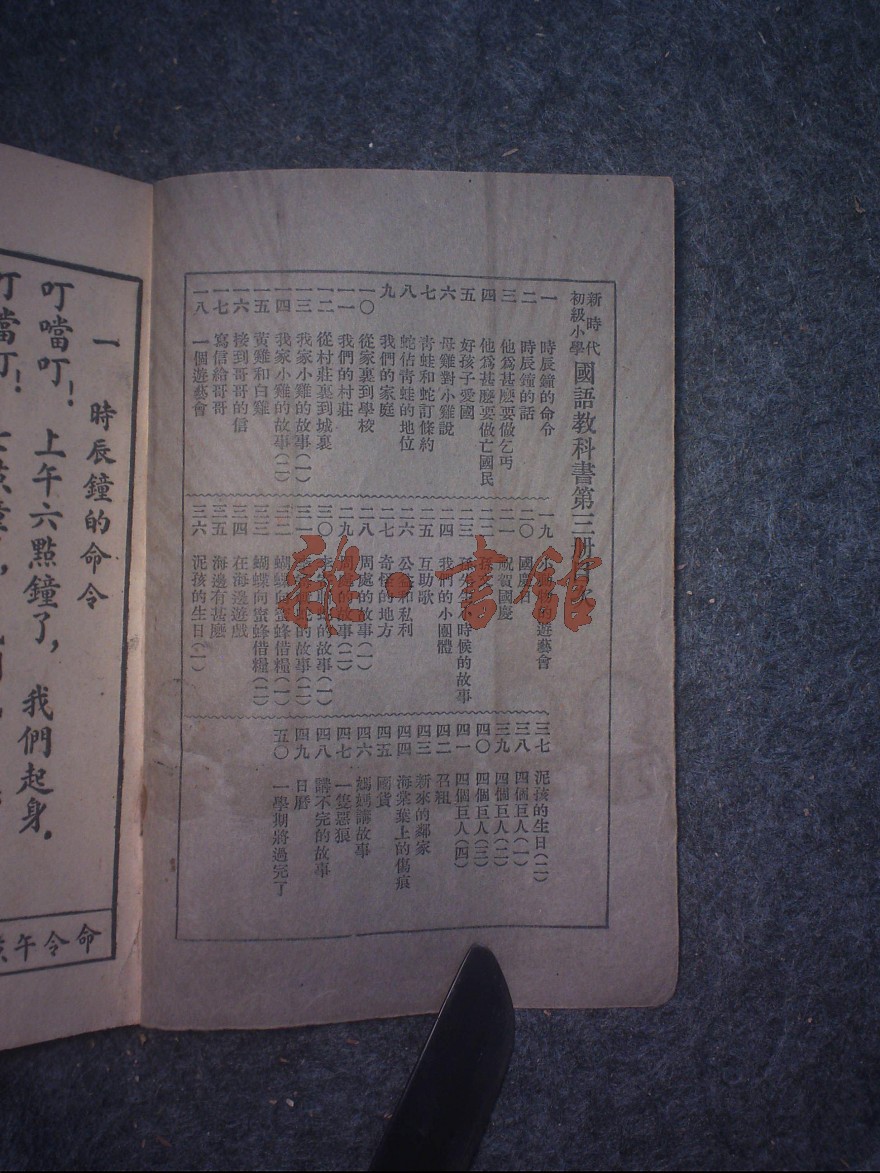 新時代
初級小學
國語教科書第三冊目次
一 時辰鐘的命令
二 時辰鐘的話
三 他爲甚麼要做乞丐
四 他爲甚麼要做亡國民
五 好孩子愛國
六 母雞對小雞說
七 青蛙和蛇訂條約
八 蛇佔青蛙的地位
九 我們的家庭
一〇 從家裏到學校
一一 我們的村莊
一二 從村莊裏到城裏
一三 我家小雞的故事(一)
一四 我家小雞的故事(二)
一五 黃雞和白雞
一六 接到哥哥的信
一七 寫信給哥哥
一八 一個遊藝會
一九 遊藝會
二〇 國慶日
二一 祝賀國慶
二二
二三 小時候的故事
二四 我們的小團體
二五 互助歌
二六 公益和私利
二七 奇怪的地方
二八 周處的故事(一)
二九 周處的故事(二)
三〇 的故事(一)
三一 的故事(二)
三二 蝴蝶向蜜蜂借糧(一)
三三 蝴蝶向蜜蜂借糧(二)
三四 在海邊遊戲
三五 海邊有甚麼
三六 泥孩的生日(一)
三七 泥孩的生日(二)
三八 四個巨人(一)
三九 四個巨人(二)
四〇 四個巨人(三)
四一 四個巨人(四)
四二 召租
四三 新來的鄰家
四四 海棠葉上的傷痕
四五 國貨
四六 螞蟻講故事
四七 一隻惡狼
四八 講不完的故事
四九 日曆
五〇 一學期將過完了
雜·書館
一 時辰鐘的命令
叮噹叮!上午六點鐘了,我們起身.
叮噹叮!
命令午